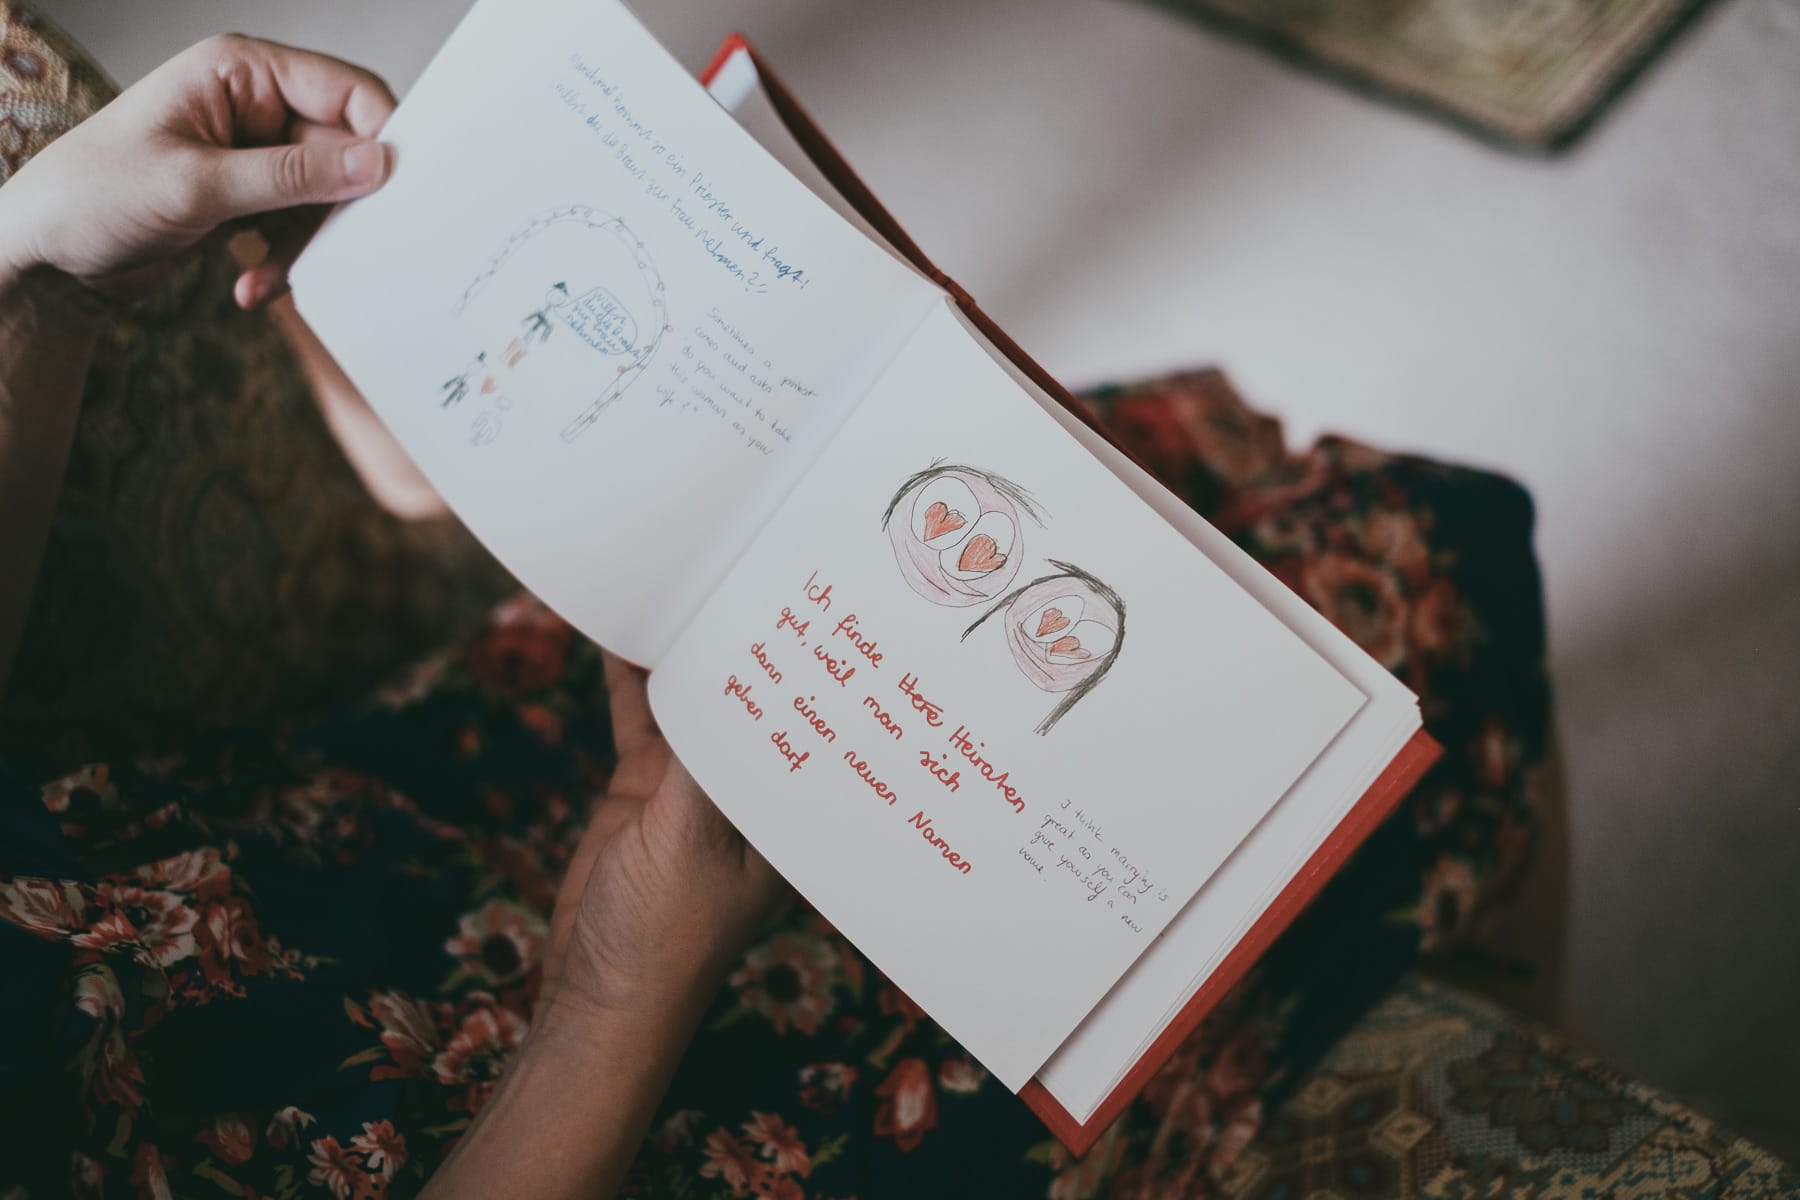 Manchmal kommt so ein Priester und fragt!
willst du die Braut zur Frau nehmen?"
willst
du die Braut
zur Frau
nehmen
Sometimes a priest
comes and asks
"do you want to take
this woman as your
wife?"
Ich finde Here Heiraten
gut, weil man sich
dann einen neuen Namen
geben darf
I think marrying is
great as you can
give yourself a new
name.